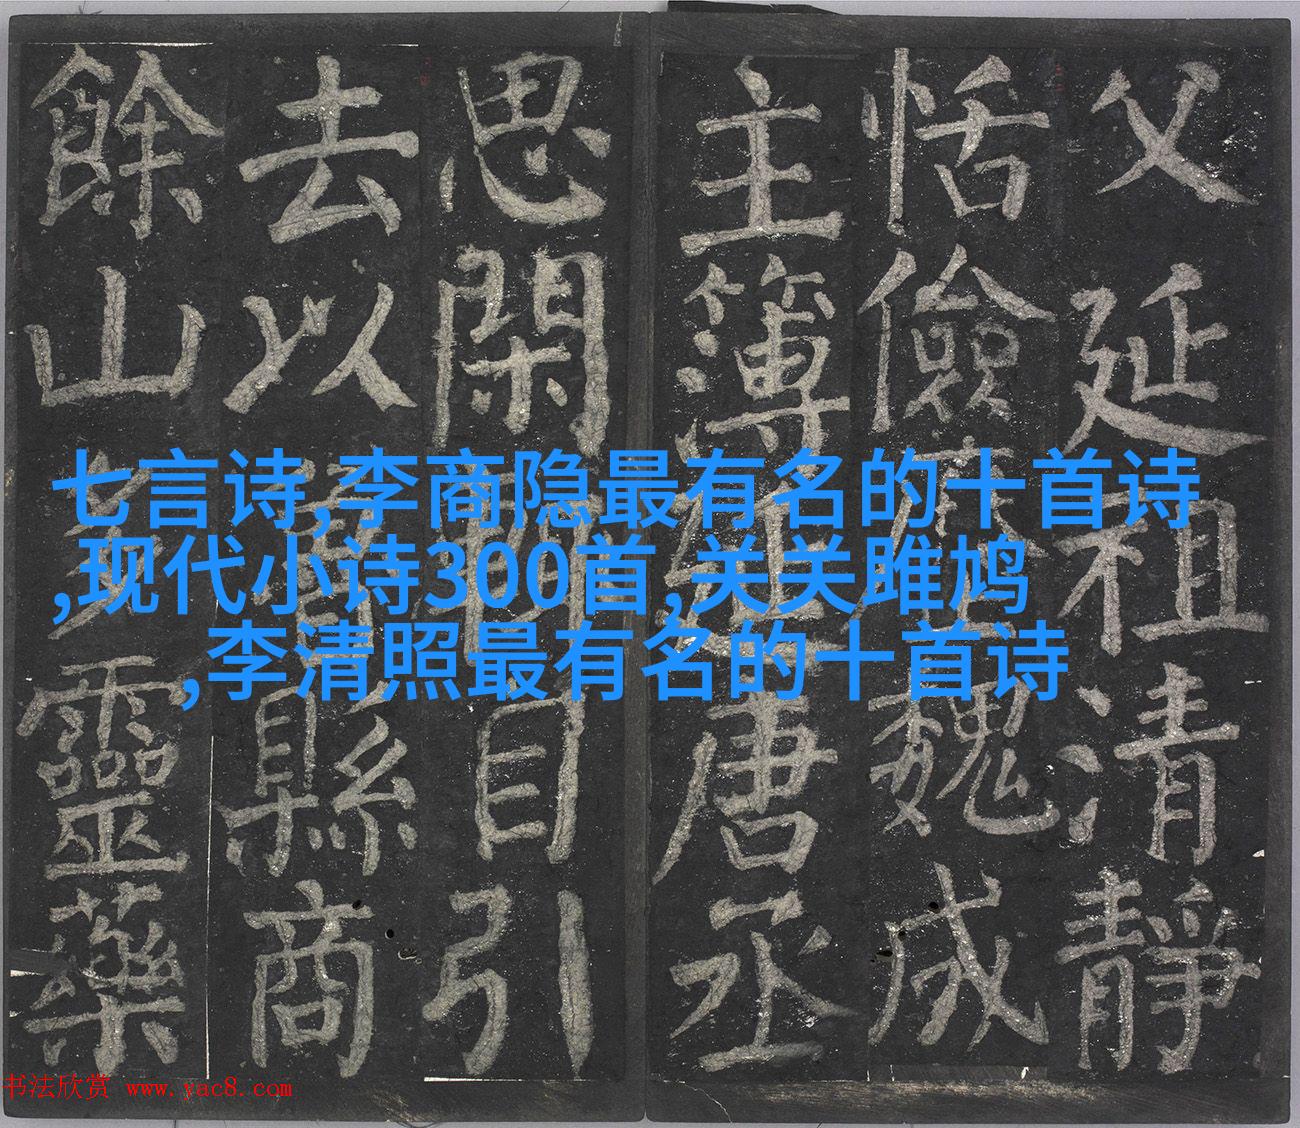 父延祖清靜
恬儉魏成
主簿唐丞
思閑自引
去以縣商
餘山多靈藥
七言诗,李商隐最有名的十首诗
,现代小诗300首,关关雎鸠
,李清照最有名的十首诗
书法欣赏 www.yac8.com